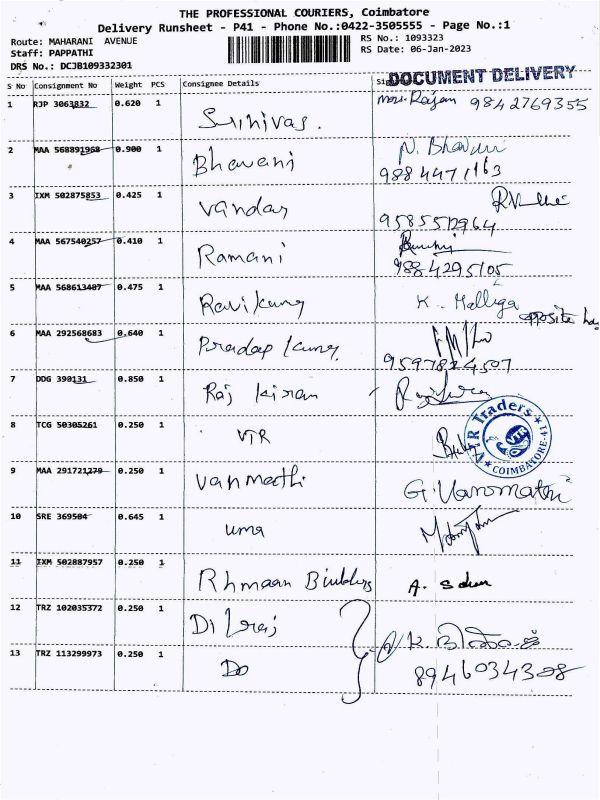 THE PROFESSIONAL COURIERS, Coimbatore
Delivery Runsheet - P41 - Phone No.:0422-3505555 - Page No.:1
Route: MAHARANI AVENUE
RS No.: 1093323
Staff: PAPPATHI
RS Date: 06-Jan-2023
DRS No.: DCJB109332301
DOCUMENT DELIVERY
S No Consignment No Weight PCS Consignee Details
1 RJP 3063832 0.620 1 Srinivas. Rajan 9842769355
2 MAA 568891968 0.900 1 Bhavani N. Bhavani
9884471163
3 IXM 502875853 0.425 1 Vanday
9585512964
4 MAA 567540257 0.410 1 Ramani
9884295105
5 MAA 568613407 0.475 1 Ravikumy K. Malliga
opposite
6 MAA 292568683 0.640 1 Pradap kumy
9597824507
7 DDG 390131 0.850 1 Raj kiran
8 TCG 50305261 0.250 1 VTR
VTR Traders
VTR
COIMBATORE-41
9 MAA 291721279 0.250 1 Vanmathi G. Vanmathi
10 SRE 369504 0.645 1 uma
11 IXM 502887957 0.250 1 Rhmaan Builders A.
12 TRZ 102035372 0.250 1 Dilraj
13 TRZ 113299973 0.250 1 Do
8946034308